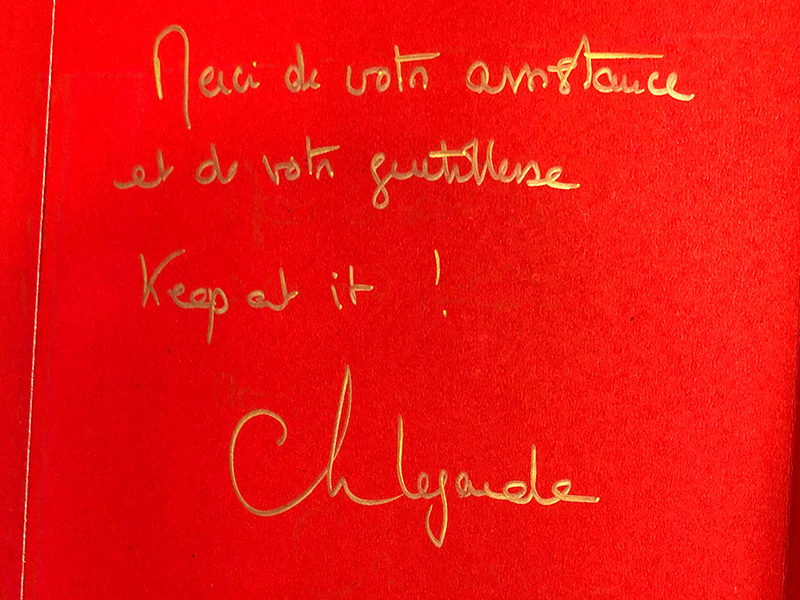 Merci de votre assistance
et de votre gentillesse
Keep at it !
Ch Lagarde